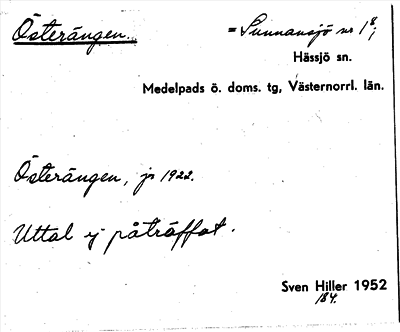 Österängen.
= Sunnansjö nr 1⁸;
Hässjö sn.
Medelpads ö. doms. tg, Västernorrl. län.
Österängen, jr 1922.
Uttal ej påträffat.
Sven Hiller 1952
184.